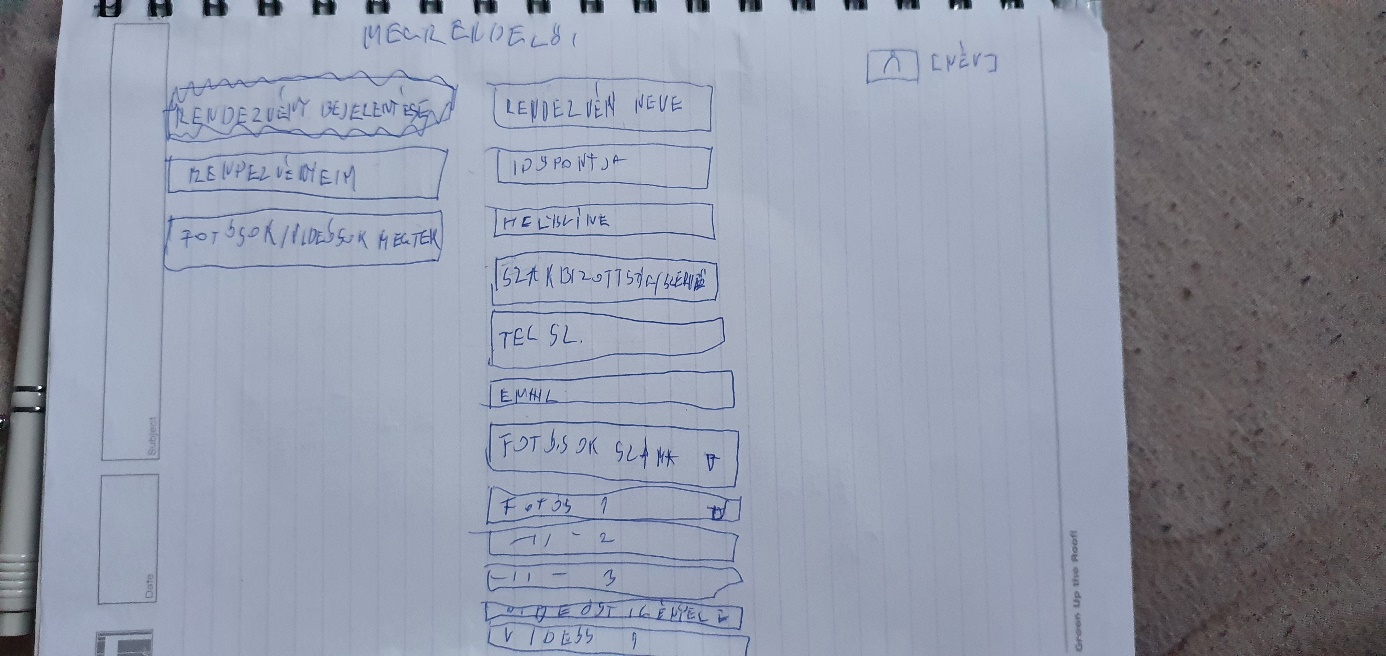 MEGRENDELŐI
[NÉV]
RENDEZVÉNY BEJELENTÉSE
RENDEZVÉNYEIM
FOTÓSOK/VIDEÓSOK MEGTEK
RENDEZVÉN NEVE
IDŐPONTJA
HELYSZÍNE
SZAKBIZOTTSÁG/SZERVEZ
TEL SZ.
EMAIL
FOTÓSOK SZÁMA
FOTÓS 1
-11- 2
-11- 3
VIDEÓST IGÉNYEL
VIDEÓS 1
Subject
Date
Green Up the Roof!